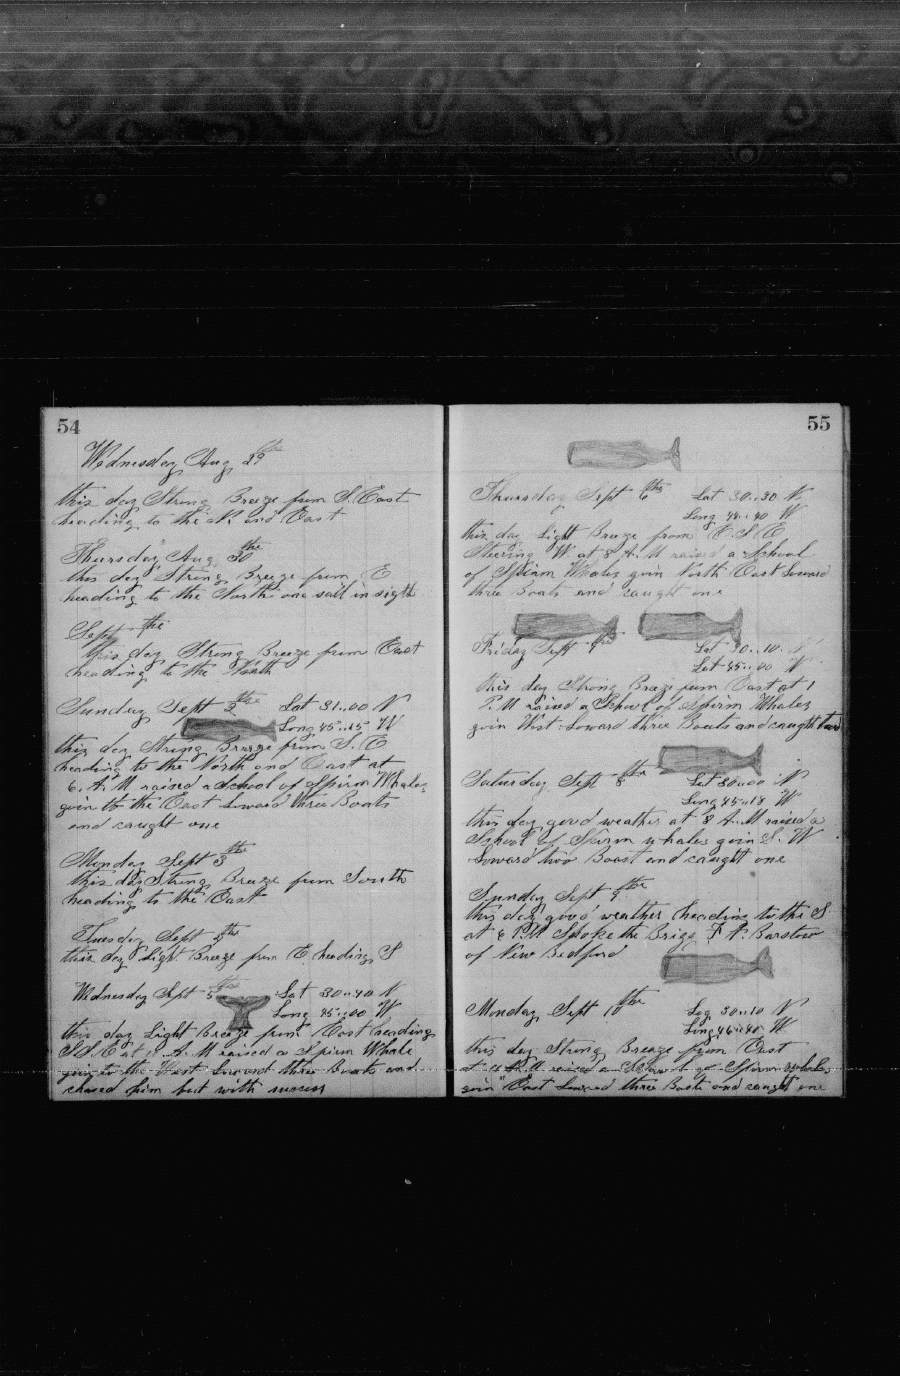 54
Wednesday Aug 29 the
this day Strong Breeze from S. East
heading to the N. and East
Thursday Aug, 30 the
this day Strong Breeze from E
heading to the North one sail in sigth
Sept the
this day Strong Breeze from East
heading to the
Sunday Sept 2 the Lat 31..00 N
Long 45..15 W
this day Strong Breeze from S. E
heading to the North and East at
6. A. M raised a School of Spirm Whales
goin to the East Loward three Boats
and caught one
Monday Sept 3 the
this day Strong Breeze from South
heading to the East
Tuesday Sept 4 the
this day Light Breeze from E, heading S
Wednesday Sept 5 the Lat 30..40 N
Long 45..00 W
this day Light Breeze from East heading
A. M raised a Spirm Whale
goin to the Loward three Boats and
chased him but with success
55
Thursday Sept 6 the Lat 30..30 N
Long 44..40 W
this day Light Breeze from E. S. E
Steering W at 8 A. M raised a School
of Spirm Whales goin North East Loward
three Boats and caught one
Friday Sept 7 the Lat 30..10 N
Lat 45..00 W
this day Strong Breze from East at 1
P. M raised a School of Spirm Whales
goin West Loward three Boats and caught two
Saturday, Sept 8 the Lat 30..00 N
Long 45..18 W
this day good weather at 8 A. M raised a
School of Spirm whales goin S. W
Loward two Boast and caught one
Sunday Sept 9 the
this day good weather heading to the S
at 6 P. M Spoke the Brigs F. A. Barstow
of New Bedford
Monday Sept 10 the Log 30..10 N
Long 46..40 W
this day Strong Breeze from East
at 4 P. M raised a of Spirm whales
goin East Loward three Boats and caught one